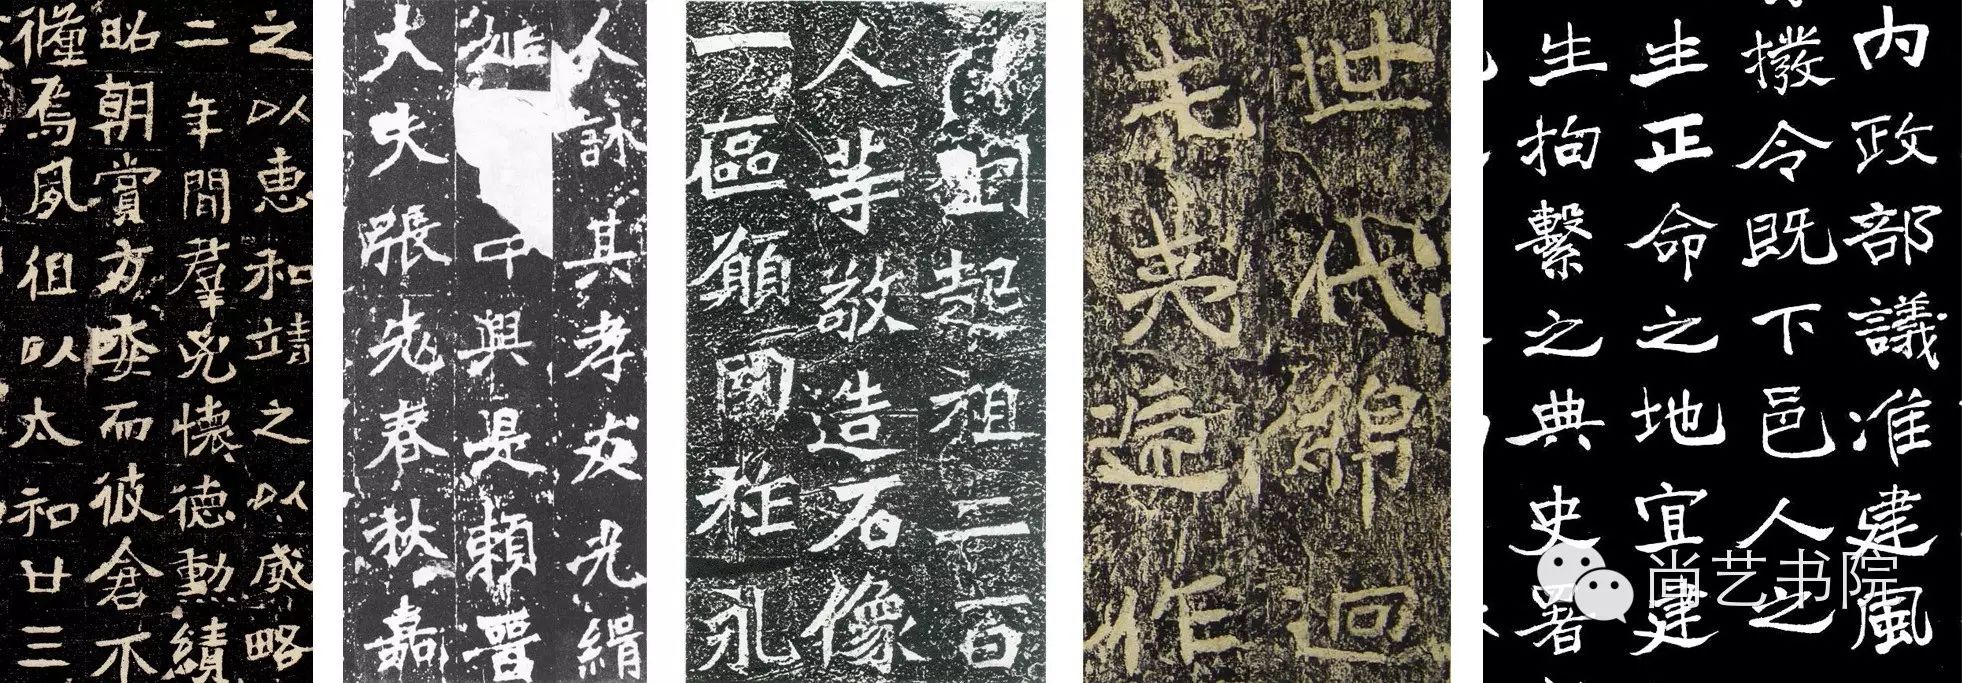 之以惠和靖之以威略
二年間羣兇懷德勳績
昭朝賞方委而彼倉不
焉夙徂以太和廿三
人詠其孝友光緝
姬中興是賴晉
大夫張老春秋嘉
劉起祖二百
人等敬造石像
一區願國祚永
世代綿迥
屯夷遞作
內政部議准建風
撥令既下邑人之
生正命之地宜建
生拘繫之典史署
尚艺书院